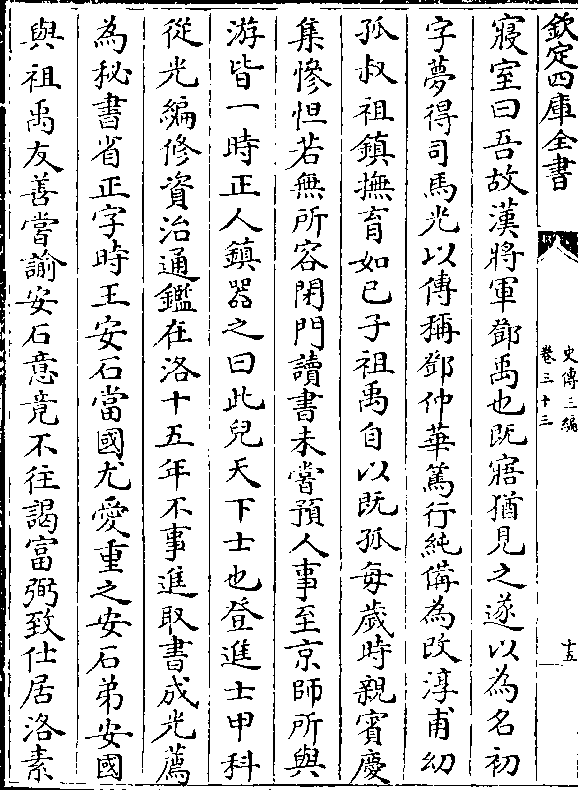 欽定四庫全書
史傳三編
卷三十三
十五
寢室曰吾故漢將軍鄧禹也既寤猶見之遂以為名初
字夢得司馬光以傳稱鄧仲華篤行純備為改淳甫幼
孤叔祖鎮撫育如己子祖禹自以既孤每歲時親賓慶
集慘怛若無所容閉門讀書未嘗預人事至京師所與
游皆一時正人鎮器之曰此兒天下士也登進士甲科
從光編修資治通鑑在洛十五年不事進取書成光薦
為秘書省正字時王安石當國尤愛重之安石弟安國
與祖禹友善嘗諭安石意竟不往謁富弼致仕居洛素